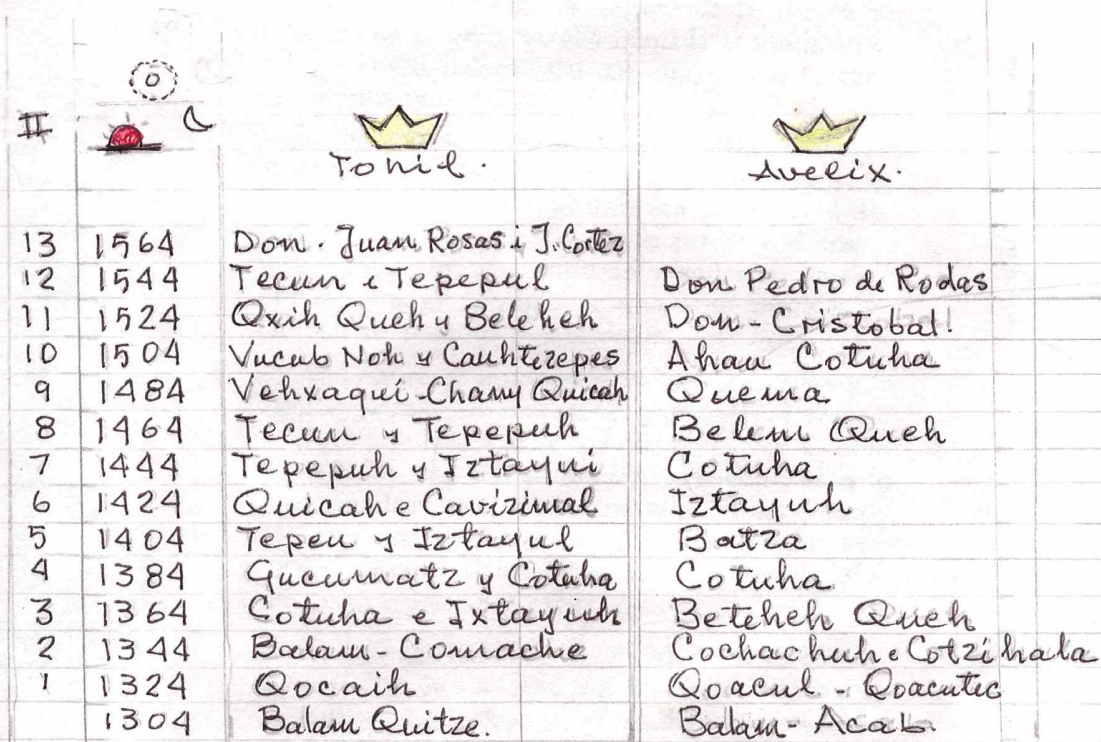 II
Tohil. Avelix.
13 1564 Don. Juan Rosas i J. Cortez
12 1544 Tecun e Tepepul Don Pedro de Rodas
11 1524 Oxih Queh y Beleheh Don - Cristobal!
10 1504 Vucub Noh y Cauhtezepes Ahau Cotuha
9 1484 Vehxaqui-Cham y Quicah Quema
8 1464 Tecum y Tepepuh Belem Queh
7 1444 Tepepuh y Iztayui Cotuha
6 1424 Quicah e Cavizimal Iztayuh
5 1404 Tepeu y Iztayul Batza
4 1384 Gucumatz y Cotuha Cotuha
3 1364 Cotuha e Ixtayuh Beteheh Queh
2 1344 Balam - Comache Cochachuh e Cotzihala
1 1324 Qocaih Qoacul - Qoacutec
1304 Balam Quitze. Balam - Acab.